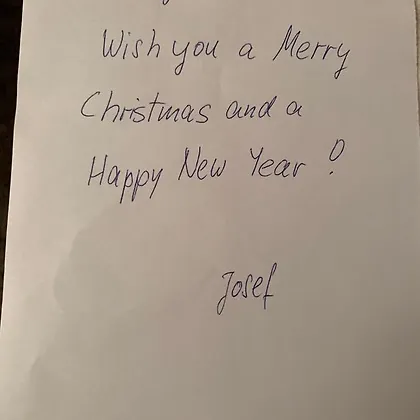 Wish you a Merry
Christmas and a
Happy New Year !
Josef